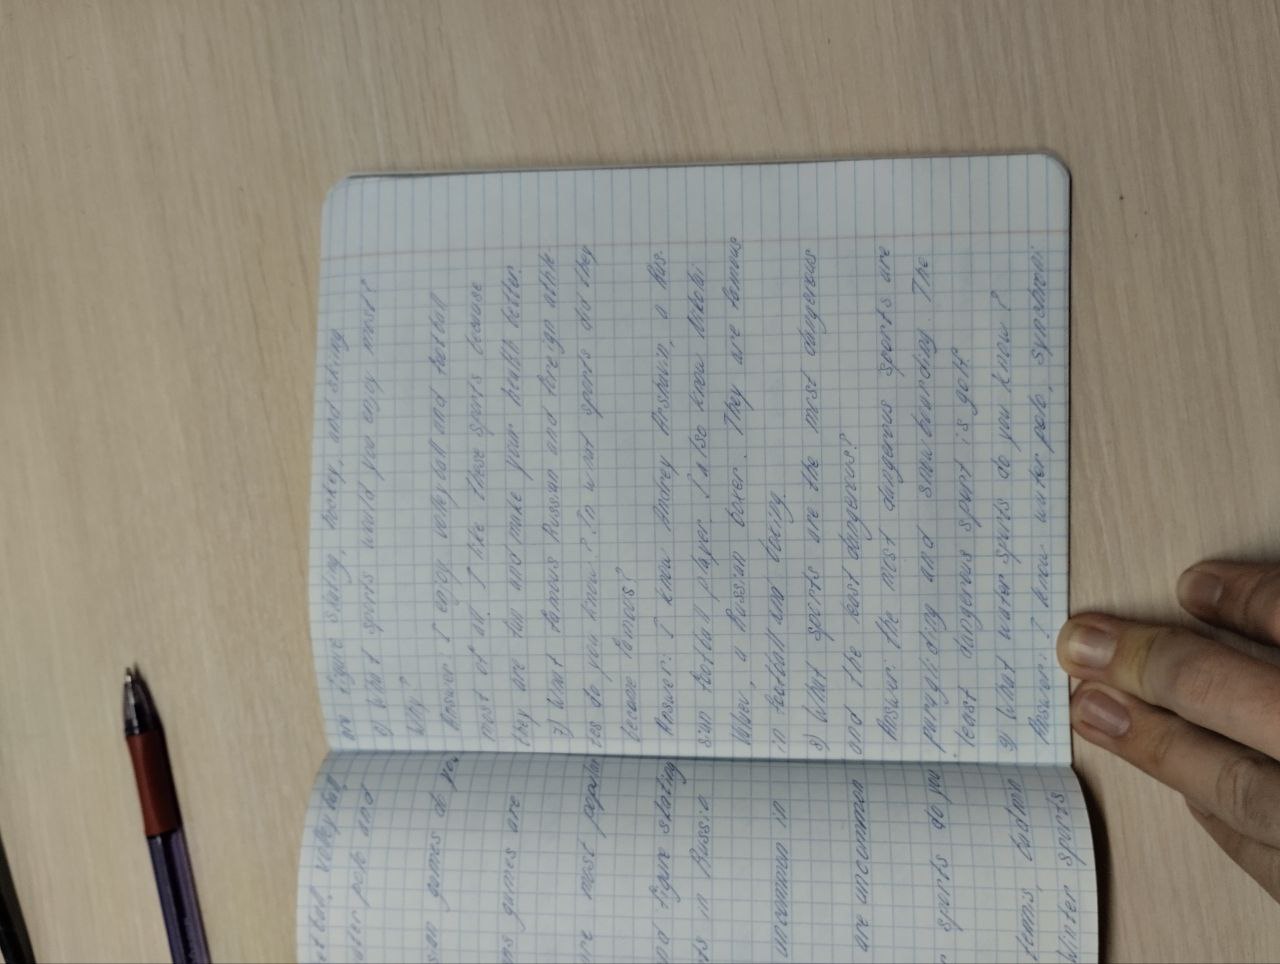 et ball, volley ball,
ater polo and
sian games do you
ns games are
are most popular
nd figure skating
ts in Russia
uncommon in
are uncommon
sports do you
tems, badmin
Winter sports
are figure skating, hockey, and skiing
6) What sports would you enjoy most?
Why?
Answer: I enjoy volleyball and football
most of all. I like these sports because
they are fun and make your health better.
7) What famous Russian and foreign athle-
tes do you know? In what sports did they
become famous?
Answer: I know Andrey Arshavin, a Rus-
sian football player. I also know Nikolai
Valuev, a Russian boxer. They are famous
in football and boxing.
8) What sports are the most dangerous
and the least dangerous?
Answer: the most dangerous sports are
paragliding and snowboarding. The
least dangerous sport is golf.
9) What water sports do you know?
Answer: I know water polo,